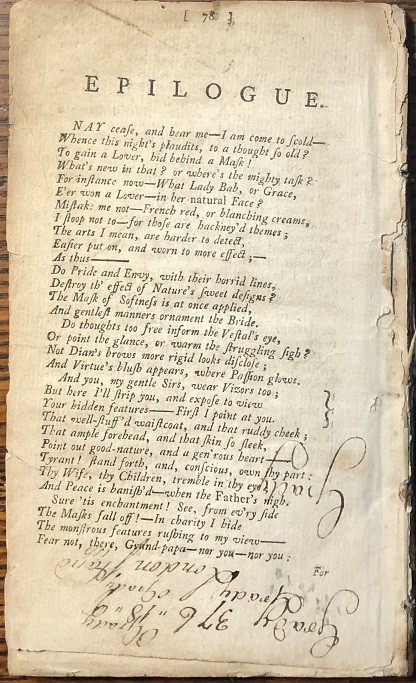 [ 78 ]
EPILOGUE.
NAY ceaſe, and hear me—I am come to ſcold—
Whence this night's plaudits, to a thought ſo old?
To gain a Lover, hid behind a Maſk!
What's new in that? or where's the mighty taſk?
For inſtance now—What Lady Bab, or Grace,
E'er won a Lover—in her natural Face?
Miſtake me not—French red, or blanching creams,
I ſtoop not to—for thoſe are hackney'd themes;
The arts I mean, are harder to detect,
Eaſier put on, and worn to more effect;—
As thus——
Do Pride and Envy, with their horrid lines,
Deſtroy th' effect of Nature's ſweet deſigns?
The Maſk of Softneſs is at once applied,
And gentleſt manners ornament the Bride.
Do thoughts too free inform the Veſtal's eye,
Or point the glance, or warm the ſtruggling ſigh?
Not Dian's brows more rigid looks diſcloſe;
And Virtue's bluſh appears, where Paſſion glows.
And you, my gentle Sirs, wear Vizors too;
But here I'll ſtrip you, and expoſe to view
Your hidden features—Firſt I point at you.
That well-ſtuff'd waiſtcoat, and that ruddy cheek;
That ample forehead, and that ſkin ſo ſleek,
Point out good-nature, and a gen'rous heart—
Tyrant! ſtand forth, and, conſcious, own thy part:
Thy Wife, thy Children, tremble in thy eye;
And Peace is baniſh'd—when the Father's nigh.
Sure 'tis enchantment! See, from ev'ry ſide
The Maſks fall off!—In charity I hide
The monſtrous features ruſhing to my view—
Fear not, there, Grand-papa—nor you—nor you:
For
London
Grady
376
Grady